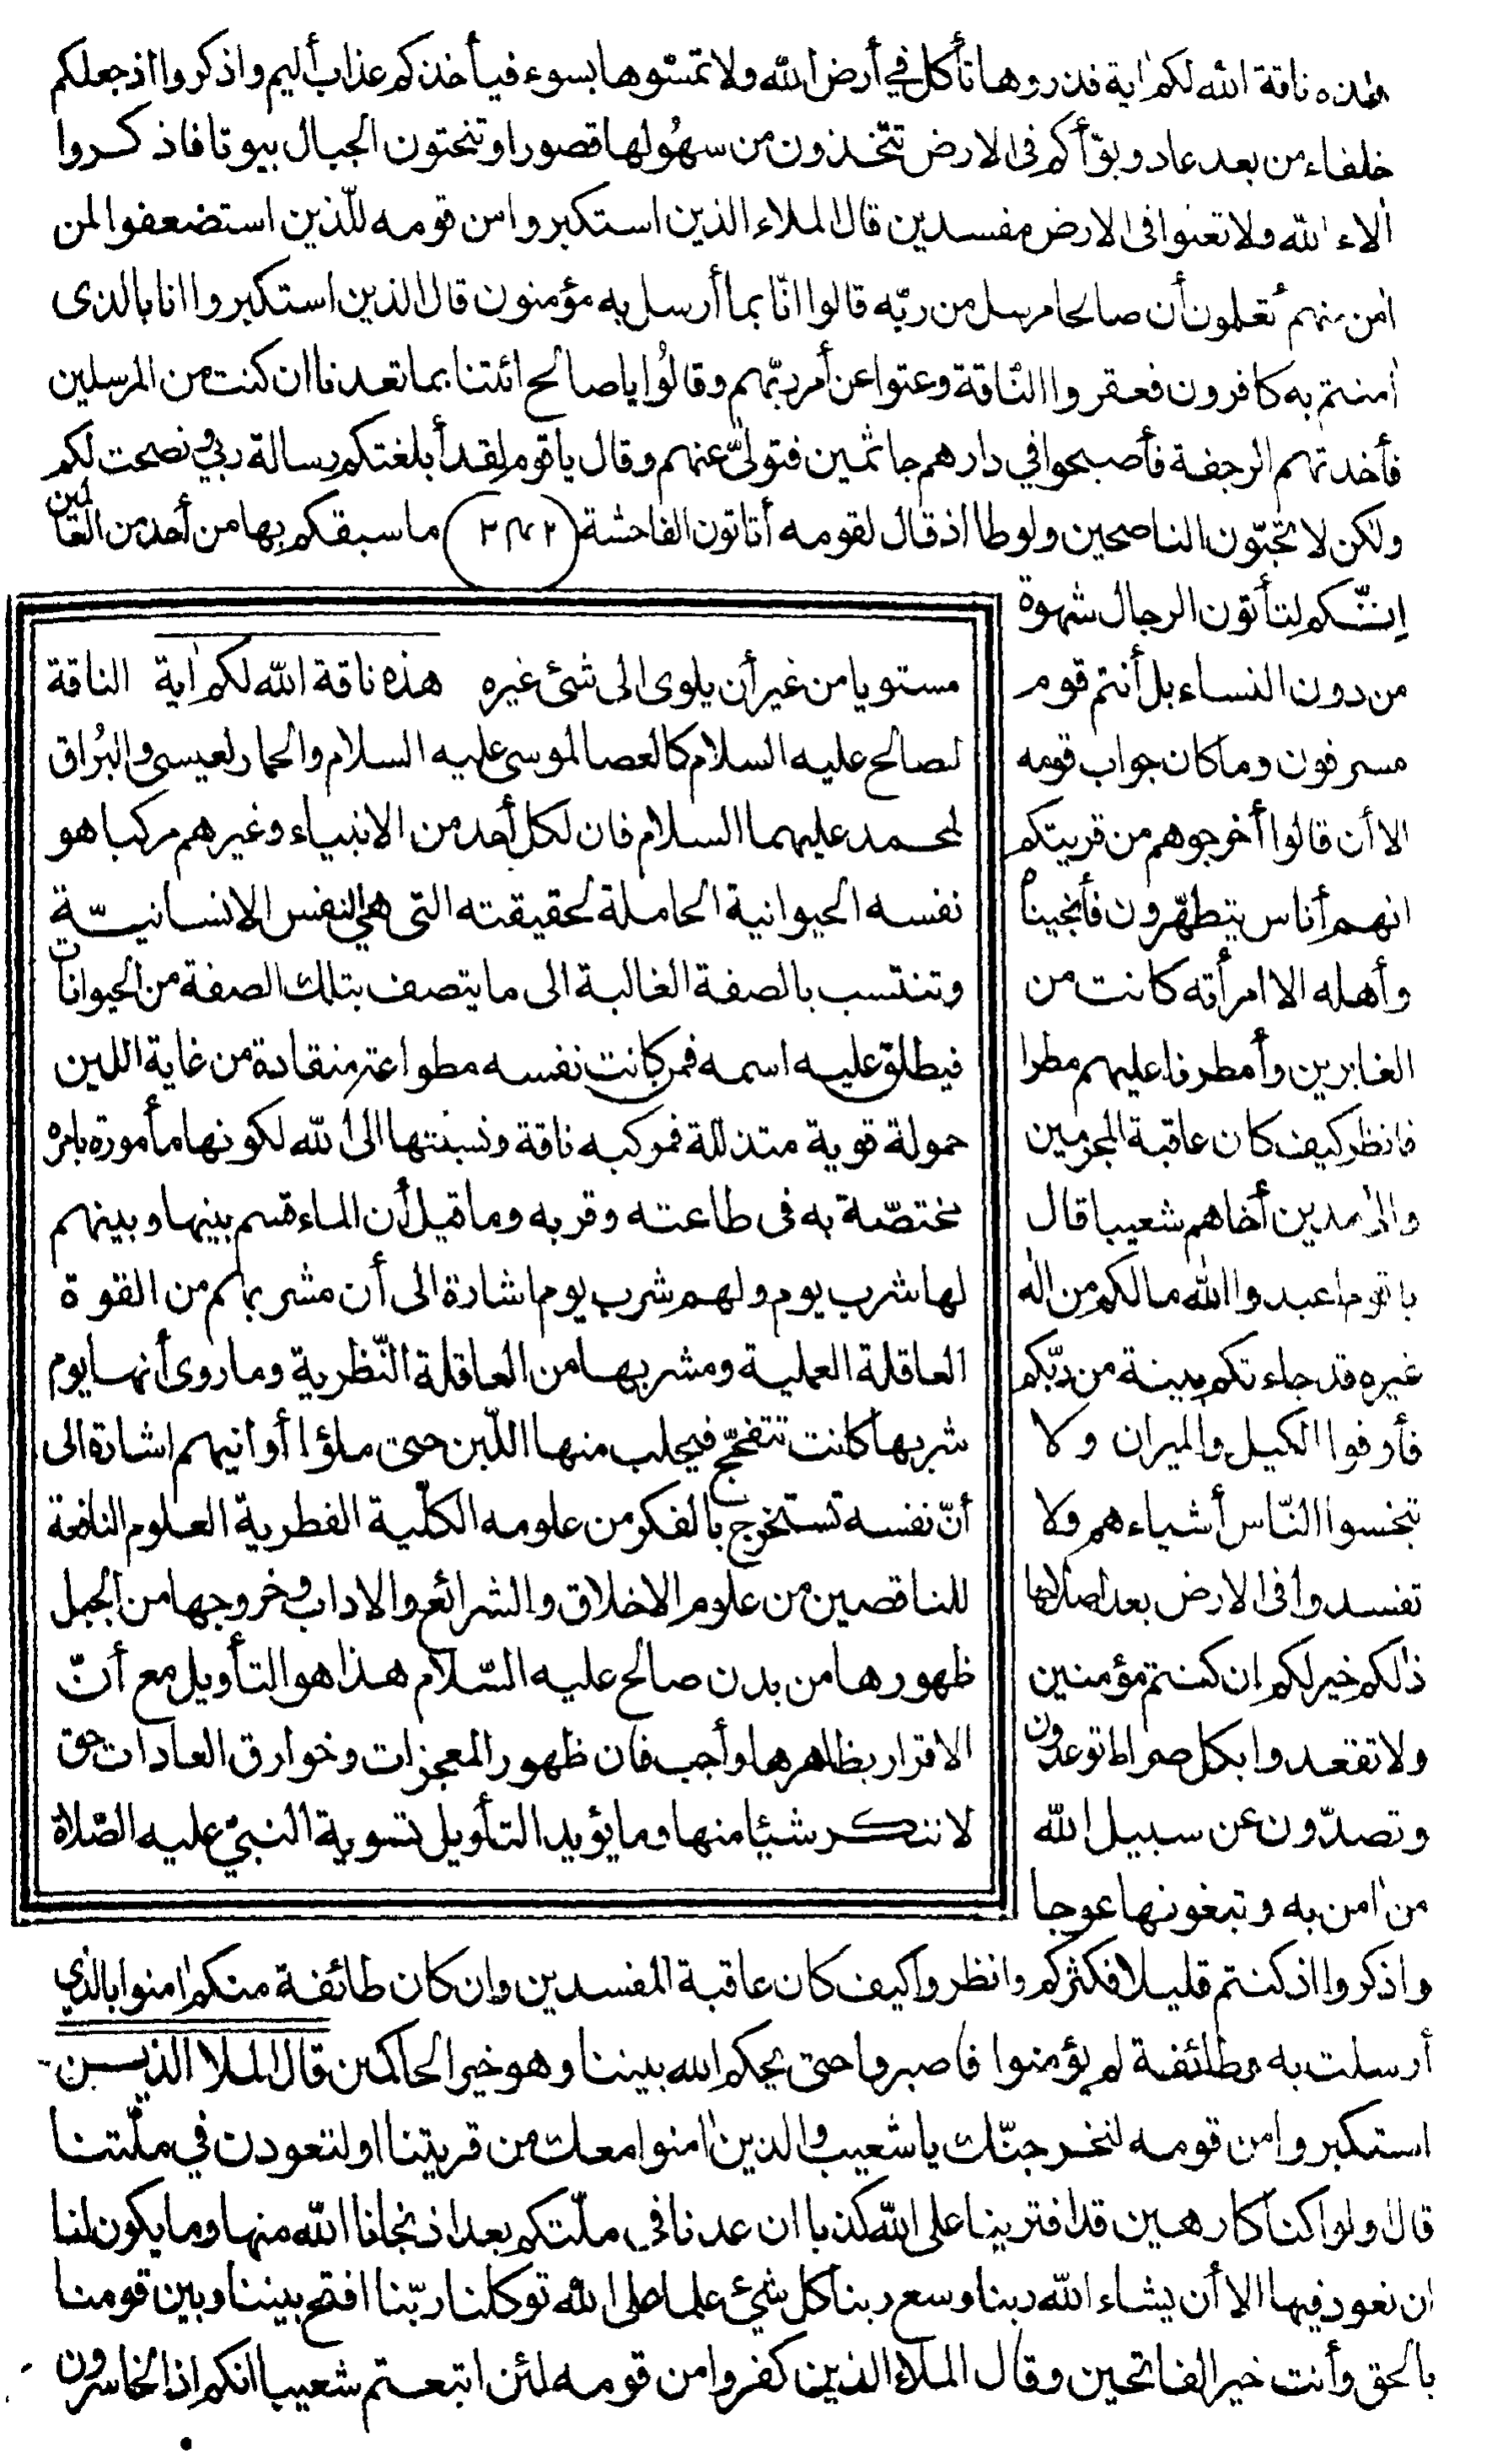 هذه ناقة الله لكم اٰية فذروها تأكل في أرض الله ولا تمسّوها بسوء فيأخذكم عذاب أليم واذكروا اذ جعلكم
خلفاء من بعد عاد وبوّأكم فى الارض تتّخذون من سهُولها قصورا وتنحتون الجبال بيوتا فاذكروا
اٰلاء الله ولا تعثوا فى الارض مفسدين قال الملاء الذين استكبروا من قومه للّذين استضعفوا لمن
اٰمن منهم تُعلمون أن صالحا مرسل من ربّه قالوا انّا بما أرسل به مؤمنون قال الذين استكبروا انا بالذى
اٰمنتم به كافرون فعقروا النّاقة وعتوا عن أمر ربّهم وقالُوا يا صالح ائتنا بما تعدنا ان كنت من المرسلين
فأخذتهم الرجفة فأصبحوا في دارهم جاثمين فتولّى عنهم وقال يا قوم لقد أبلغتكم رسالة ربي ونصحت لكم
ولٰكن لا تحبّون الناصحين ولوطا اذ قال لقومه أتاتون الفاحشة (٢٤٢) ما سبقكم بها من أحد من العٰالمين
إنّكم لتأتون الرجال شهوة
من دون النساء بل أنتم قوم
مسرفون وما كان جواب قومه
الا أن قالوا أخرجوهم من قريتكم
انهم أناس يتطهّرون فأنجيناه
وأهله الا امرأته كانت من
الغابرين وأمطرنا عليهم مطرا
فانظر كيف كان عاقبة المجرمين
والى مدين أخاهم شعيبا قال
يا قوم اعبدوا الله ما لكم من الٰه
غيره قد جاءتكم بينة من ربّكم
فأوفوا الكيل والميزان ولا
تبخسوا النّاس أشياءهم ولا
تفسدوا فى الارض بعد اصلاحها
ذالكم خير لكم ان كنتم مؤمنين
ولا تقعدوا بكل صراط توعدون
وتصدّون عن سبيل الله
من اٰمن به وتبغونها عوجا
مستويا من غير أن يلوى الى شئ غيره هذه ناقة الله لكم اٰية الناقة
لصالح عليه السلام كالعصا لموسى عليه السلام والحمار لعيسى والبُراق
لمحمد عليهما السلام فان لكل أحد من الانبياء وغيرهم مركبا هو
نفسه الحيوانية الحاملة لحقيقته التى هي النفس الانسانيّة
وتنتسب بالصفة الغالبة الى ما يتصف بتلك الصفة من الحيوانات
فيطلق عليه اسمه فمن كانت نفسه مطواعة منقادة من غاية اللين
حمولة قوية متذللة فمركبه ناقة ونسبتها الى الله لكونها مأمورة بامره
مختصّة به فى طاعته وقربه وما قيل أن الماء قسم بينها وبينهم
لها شرب يوم ولهم شرب يوم اشارة الى أن مشربهم من القوة
العاقلة العملية ومشربها من العاقلة النّظرية وما روى أنها يوم
شربها كانت تتفحّج فيحلب منها اللّبن حتى ملؤا أوانيهم اشارة الى
أنّ نفسه تستخرج بالفكر من علومه الكلّية الفطرية العلوم النافعة
للناقصين من علوم الاخلاق والشرائع والاداب وخروجها من الجبل
ظهورها من بدن صالح عليه السّلام هذا هو التأويل مع أنّ
الاقرار بظاهرها واجب فان ظهور المعجزات وخوارق العادات حق
لا ننكر شيئا منها ومما يؤيد التأويل تسوية النبيّ عليه الصّلاة
واذكروا اذ كنتم قليلا فكثركم وانظروا كيف كان عاقبة المفسدين وان كان طائفة منكم اٰمنوا بالذي
أرسلت به وطائفة لم يؤمنوا فاصبروا حتى يحكم الله بيننا وهو خير الحاكمين قال الملا الذين
استكبروا من قومه لنخرجنّك يا شعيب والذين اٰمنوا معك من قريتنا او لتعودن في ملّتنا
قال اولو كنا كارهين قد افترينا على الله كذبا ان عدنا في ملّتكم بعد اذ نجانا الله منها وما يكون لنا
ان نعود فيها الا أن يشاء الله ربنا وسع ربنا كل شئ علما على الله توكلنا ربّنا افتح بيننا وبين قومنا
بالحق وأنت خير الفاتحين وقال الملاء الذين كفروا من قومه لئن اتبعتم شعيبا انكم اذا لخاسرون